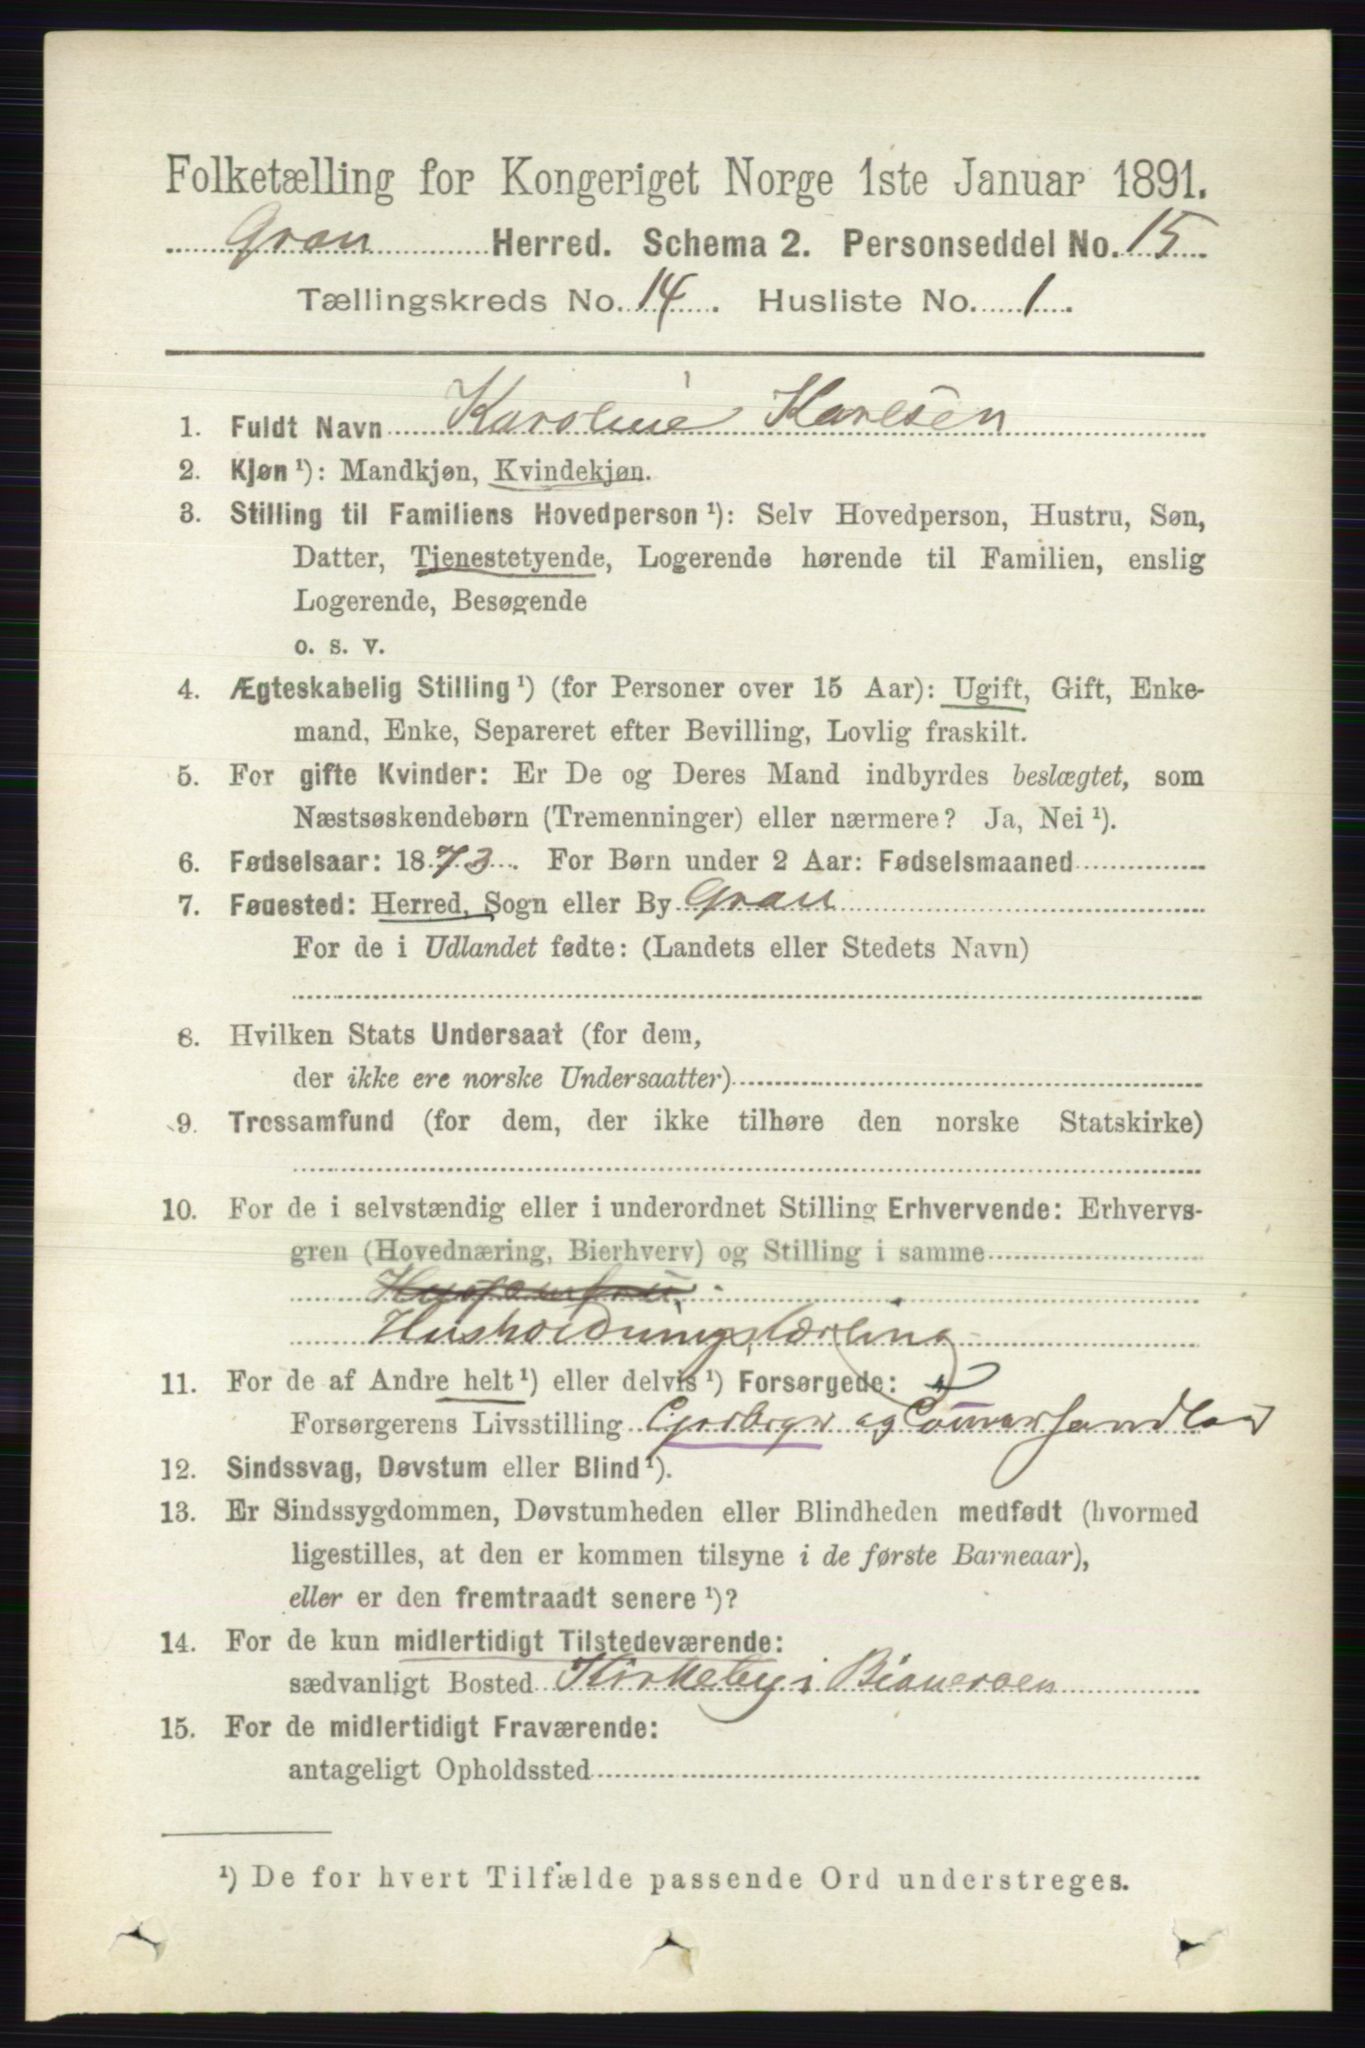 Folketælling for Kongeriget Norge 1ste Januar 1891.
Gran Herred. Schema 2. Personseddel No. 15
Tællingskreds No. 14. Husliste No. 1.
1. Fuldt Navn Karoline Karlsen
2. Kjøn ¹): Mandkjøn, Kvindekjøn.
3. Stilling til Familiens Hovedperson ¹): Selv Hovedperson, Hustru, Søn,
Datter, Tjenestetyende, Logerende hørende til Familien, enslig
Logerende, Besøgende
o. s. v.
4. Ægteskabelig Stilling ¹) (for Personer over 15 Aar): Ugift, Gift, Enke-
mand, Enke, Separeret efter Bevilling, Lovlig fraskilt.
5. For gifte Kvinder: Er De og Deres Mand indbyrdes beslægtet, som
Næstsøskendebørn (Tremenninger) eller nærmere? Ja, Nei ¹).
6. Fødselsaar: 1873. For Børn under 2 Aar: Fødselsmaaned
7. Fødested: Herred, Sogn eller By Gran
For de i Udlandet fødte: (Landets eller Stedets Navn)
8. Hvilken Stats Undersaat (for dem,
der ikke ere norske Undersaatter)
9. Trossamfund (for dem, der ikke tilhøre den norske Statskirke)
10. For de i selvstændig eller i underordnet Stilling Erhvervende: Erhvervs-
gren (Hovednæring, Bierhverv) og Stilling i samme
Husholdningslærling
11. For de af Andre helt ¹) eller delvis ¹) Forsørgede: "
Forsørgerens Livsstilling og
12. Sindssvag, Døvstum eller Blind ¹).
13. Er Sindssygdommen, Døvstumheden eller Blindheden medfødt (hvormed
ligestilles, at den er kommen tilsyne i de første Barneaar),
eller er den fremtraadt senere ¹)?
14. For de kun midlertidigt Tilstedeværende:
sædvanligt Bosted Kirkeby i
15. For de midlertidigt Fraværende:
antageligt Opholdssted
¹) De for hvert Tilfælde passende Ord understreges.